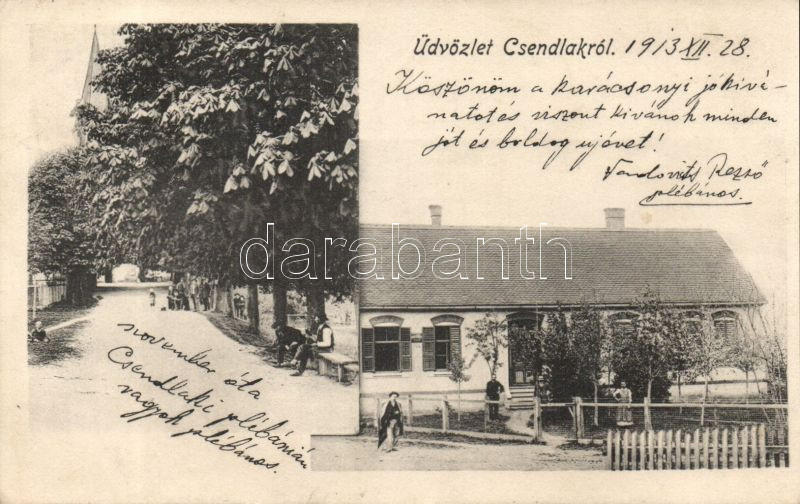 Üdvözlet Csendlakról. 1913 XII. 28.
Köszönöm a karácsonyi jókivá-
natot és viszont kivánok minden
jót és boldog ujévet!
Rezső
plébános.
darabanth
november óta
Csendlaki plébánián
vagyok plébános.